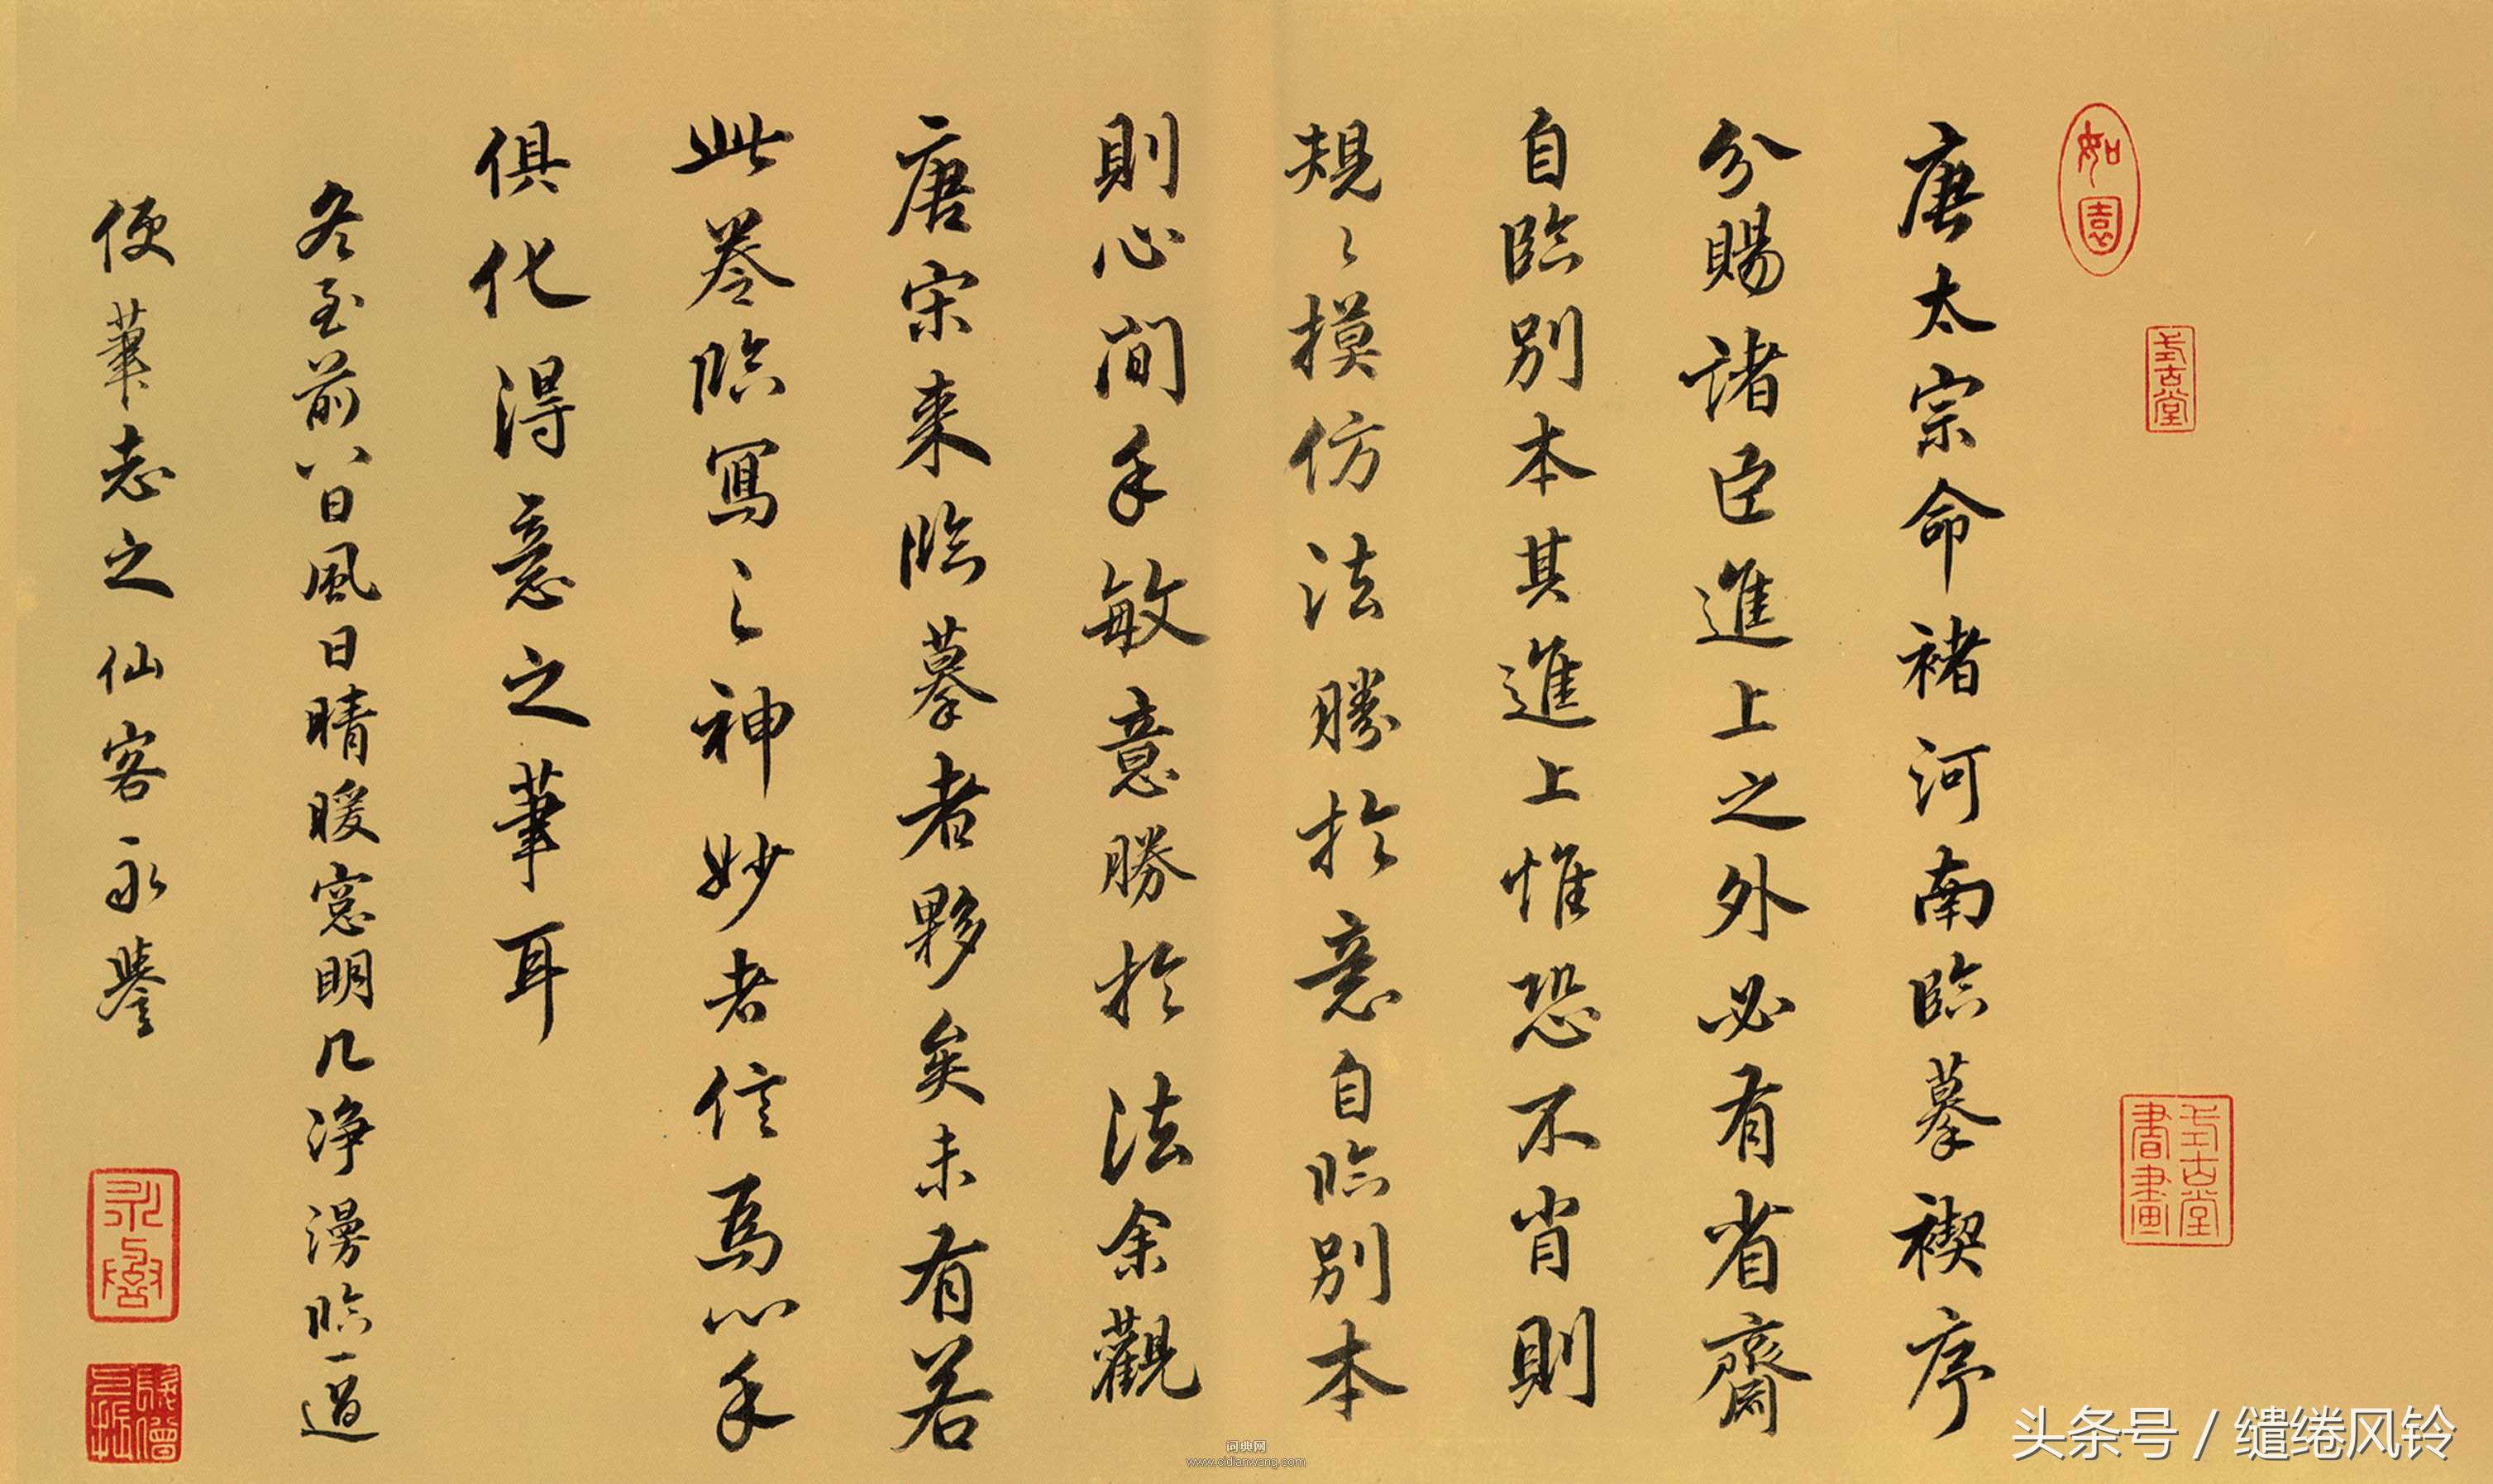 如園
式古堂
式古堂書畫
唐太宗命褚河南臨摹禊序
分賜諸臣進上之外必有省齋
自臨別本其進上惟恐不肖則
規〻摸仿法勝於意自臨別本
則心閒手敏意勝於法余觀
唐宋来臨摹者夥矣未有若
此卷臨寫之神妙者信爲心手
俱化得意之筆耳
冬至前八日風日晴暖窓明几淨漫臨一過
便筆志之仙客永譽
词典网
www.cidianwang.com
头条号 / 缱绻风铃